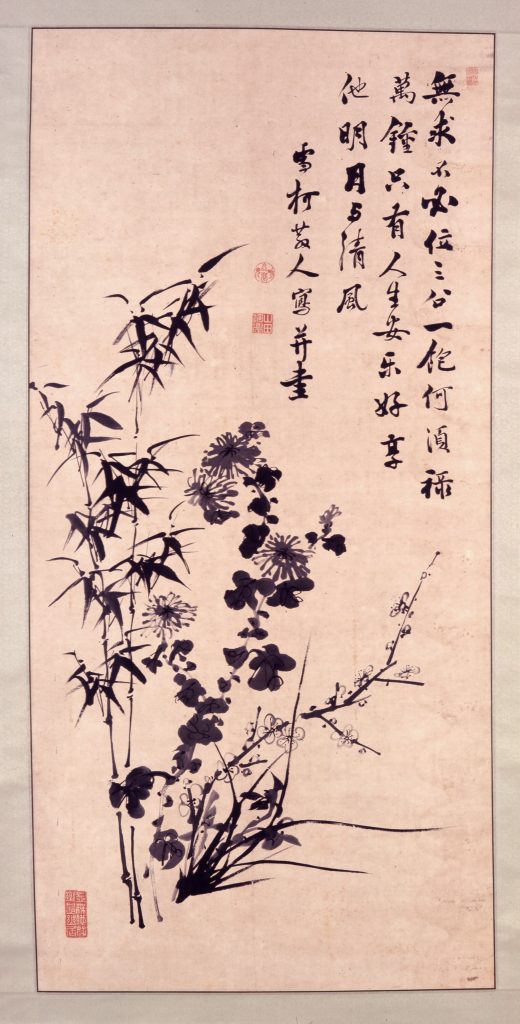 無求不必位三公一飽何須祿
萬鍾只有人生安乐好享
他明月与清風
雪柯散人寫并書